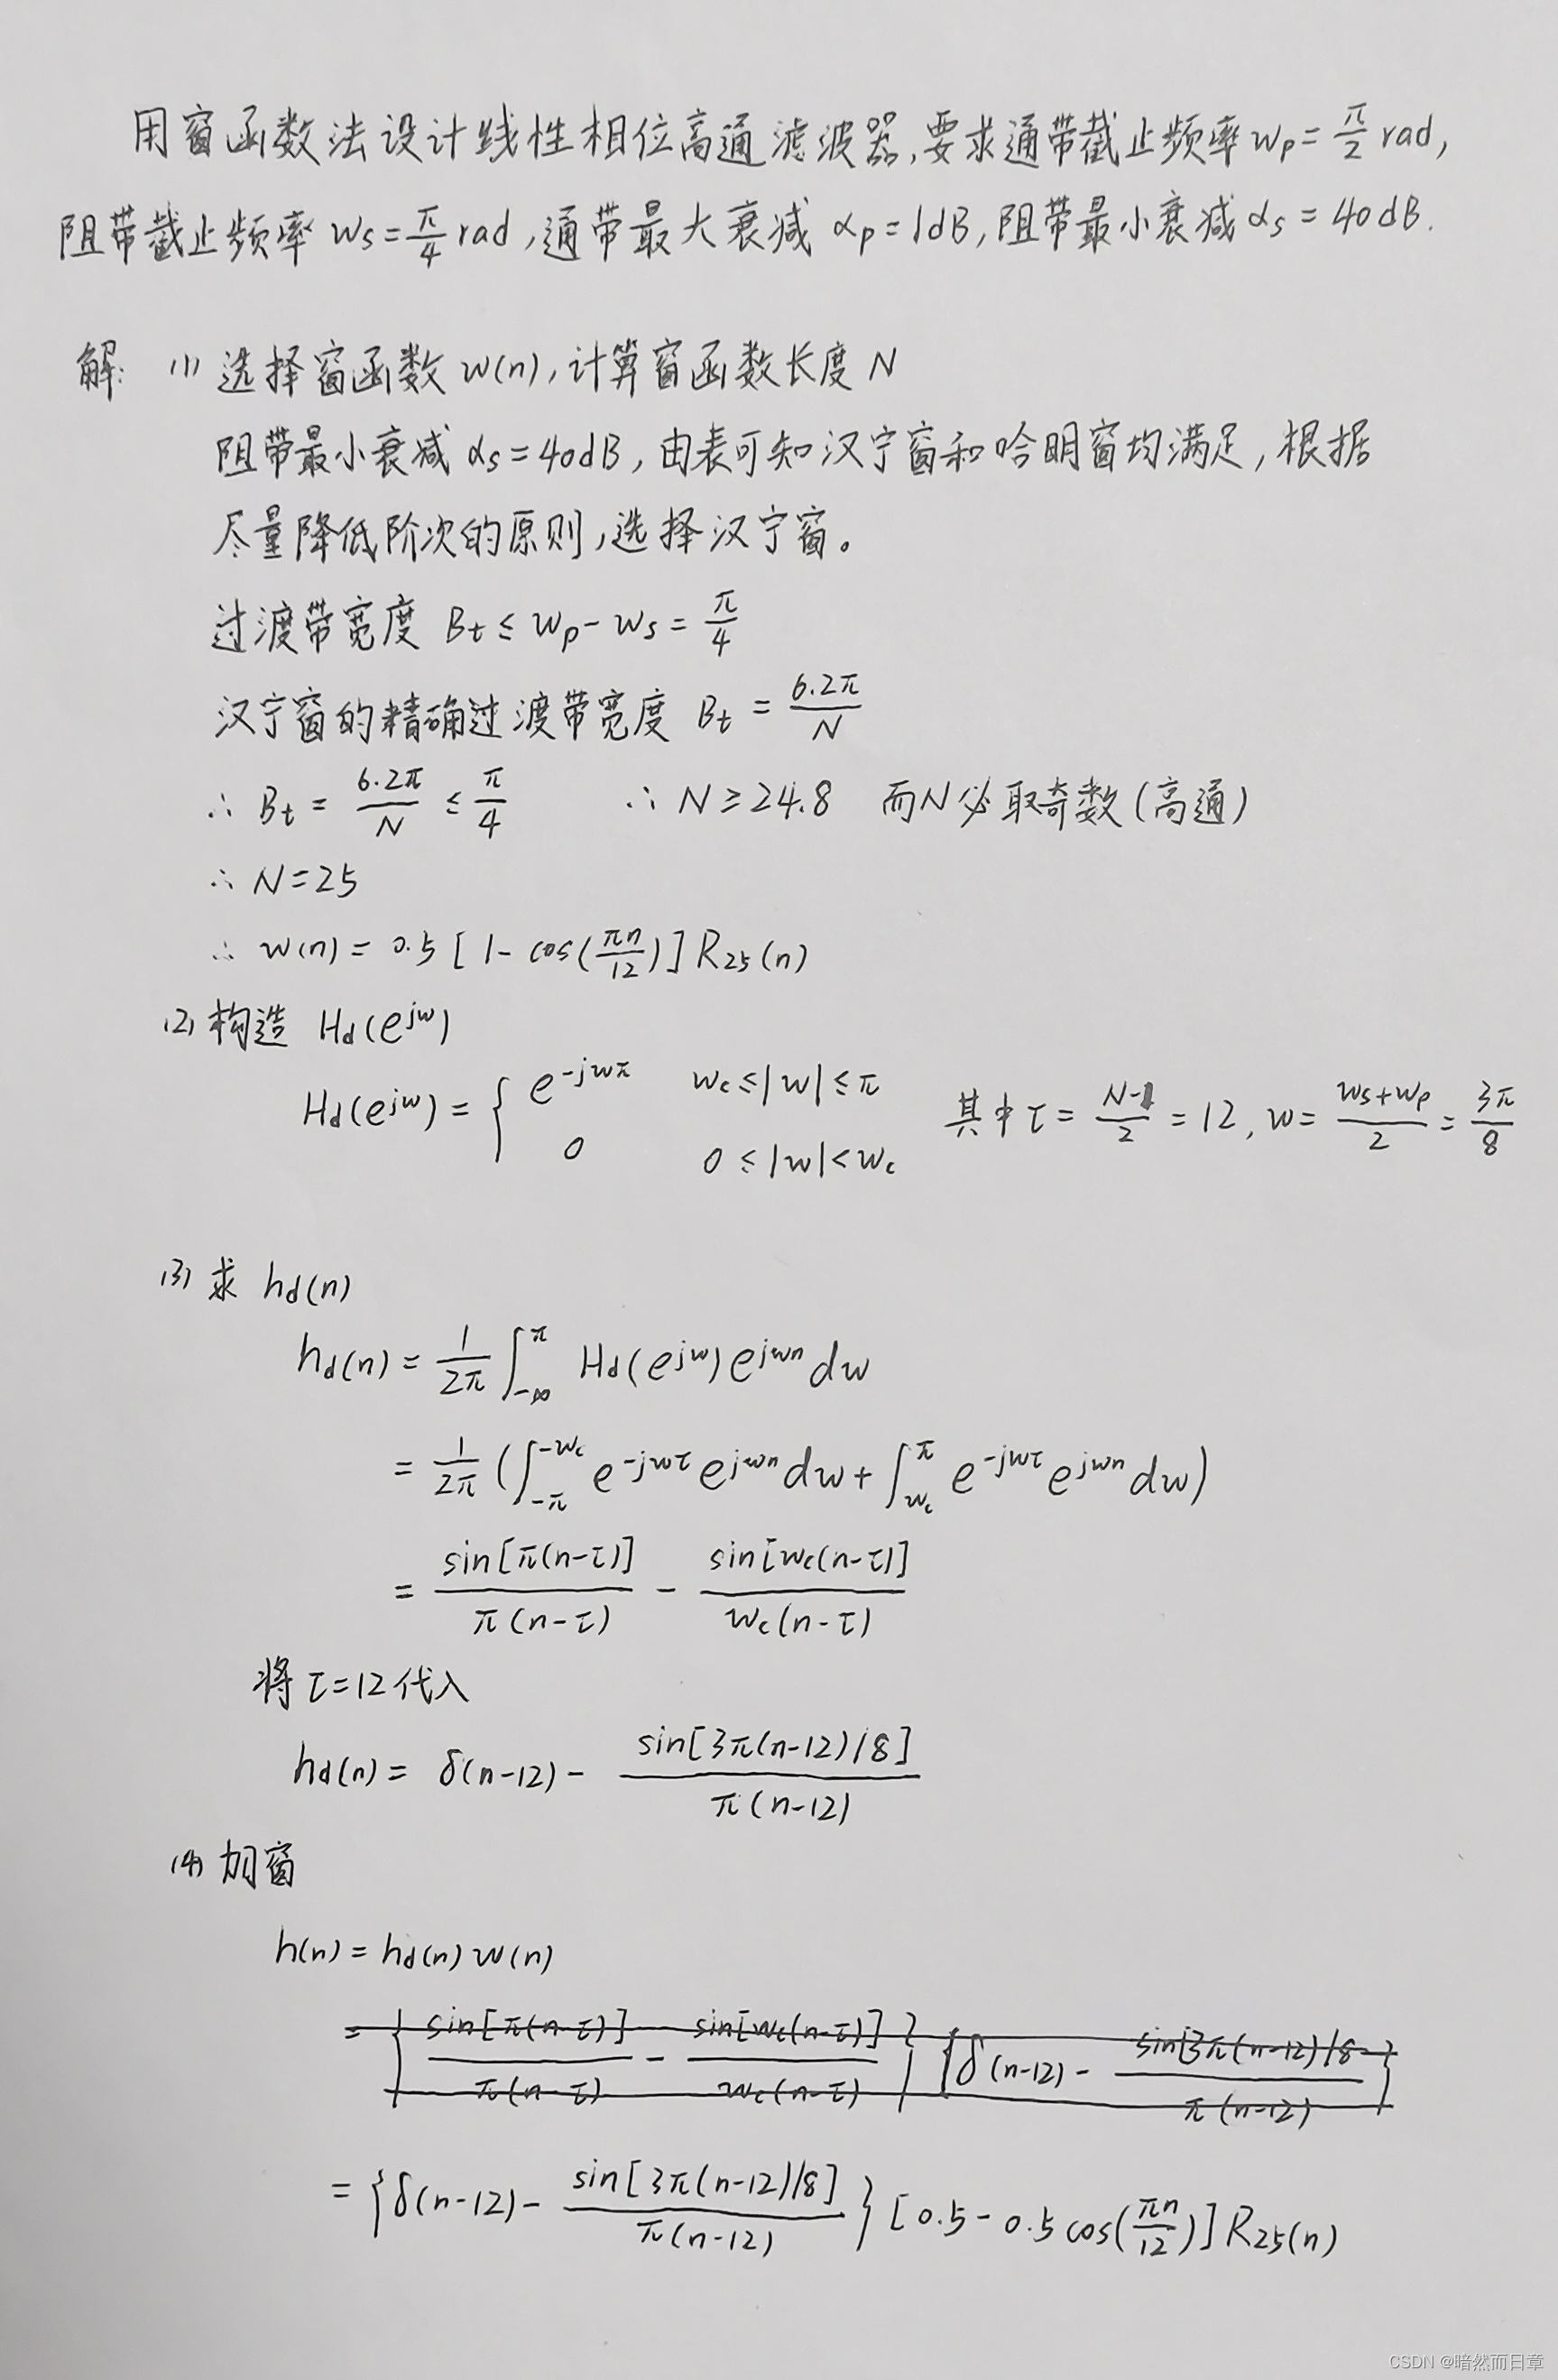 用窗函数法设计线性相位高通滤波器,要求通带截止频率 wp = π/2 rad,
阻带截止频率 ws = π/4 rad,通带最大衰减 αp = 1dB,阻带最小衰减 αs = 40dB.
解: (1) 选择窗函数 w(n),计算窗函数长度 N
阻带最小衰减 αs = 40dB,由表可知汉宁窗和哈明窗均满足,根据
尽量降低阶次的原则,选择汉宁窗。
过渡带宽度 Bt ≤ wp - ws = π/4
汉宁窗的精确过渡带宽度 Bt = 6.2π/N
∴ Bt = 6.2π/N ≤ π/4 ∴ N ≥ 24.8 而N必取奇数(高通)
∴ N = 25
∴ w(n) = 0.5 [1 - cos(πn/12)] R25(n)
(2) 构造 Hd(e^jw)
Hd(e^jw) = { e^-jwπ wc ≤ |w| ≤ π
0 0 ≤ |w| < wc 其中 τ = (N-1)/2 = 12, w = (ws+wp)/2 = 3π/8
(3) 求 hd(n)
hd(n) = 1/2π ∫_-∞^π Hd(e^jw) e^jwn dw
= 1/2π (∫_-π^-wc e^-jwτ e^jwn dw + ∫_wc^π e^-jwτ e^jwn dw)
= sin[π(n-τ)]/π(n-τ) - sin[wc(n-τ)]/wc(n-τ)
将 τ=12 代入
hd(n) = δ(n-12) - sin[3π(n-12)/8]/π(n-12)
(4) 加窗
h(n) = hd(n) w(n)
= { sin[π(n-τ)]/π(n-τ) - sin[wc(n-τ)]/wc(n-τ) } {δ(n-12) - sin[3π(n-12)/8/π(n-12)}
= {δ(n-12) - sin[3π(n-12)/8]/π(n-12)} [0.5 - 0.5cos(πn/12)] R25(n)
CSDN @暗然而日章